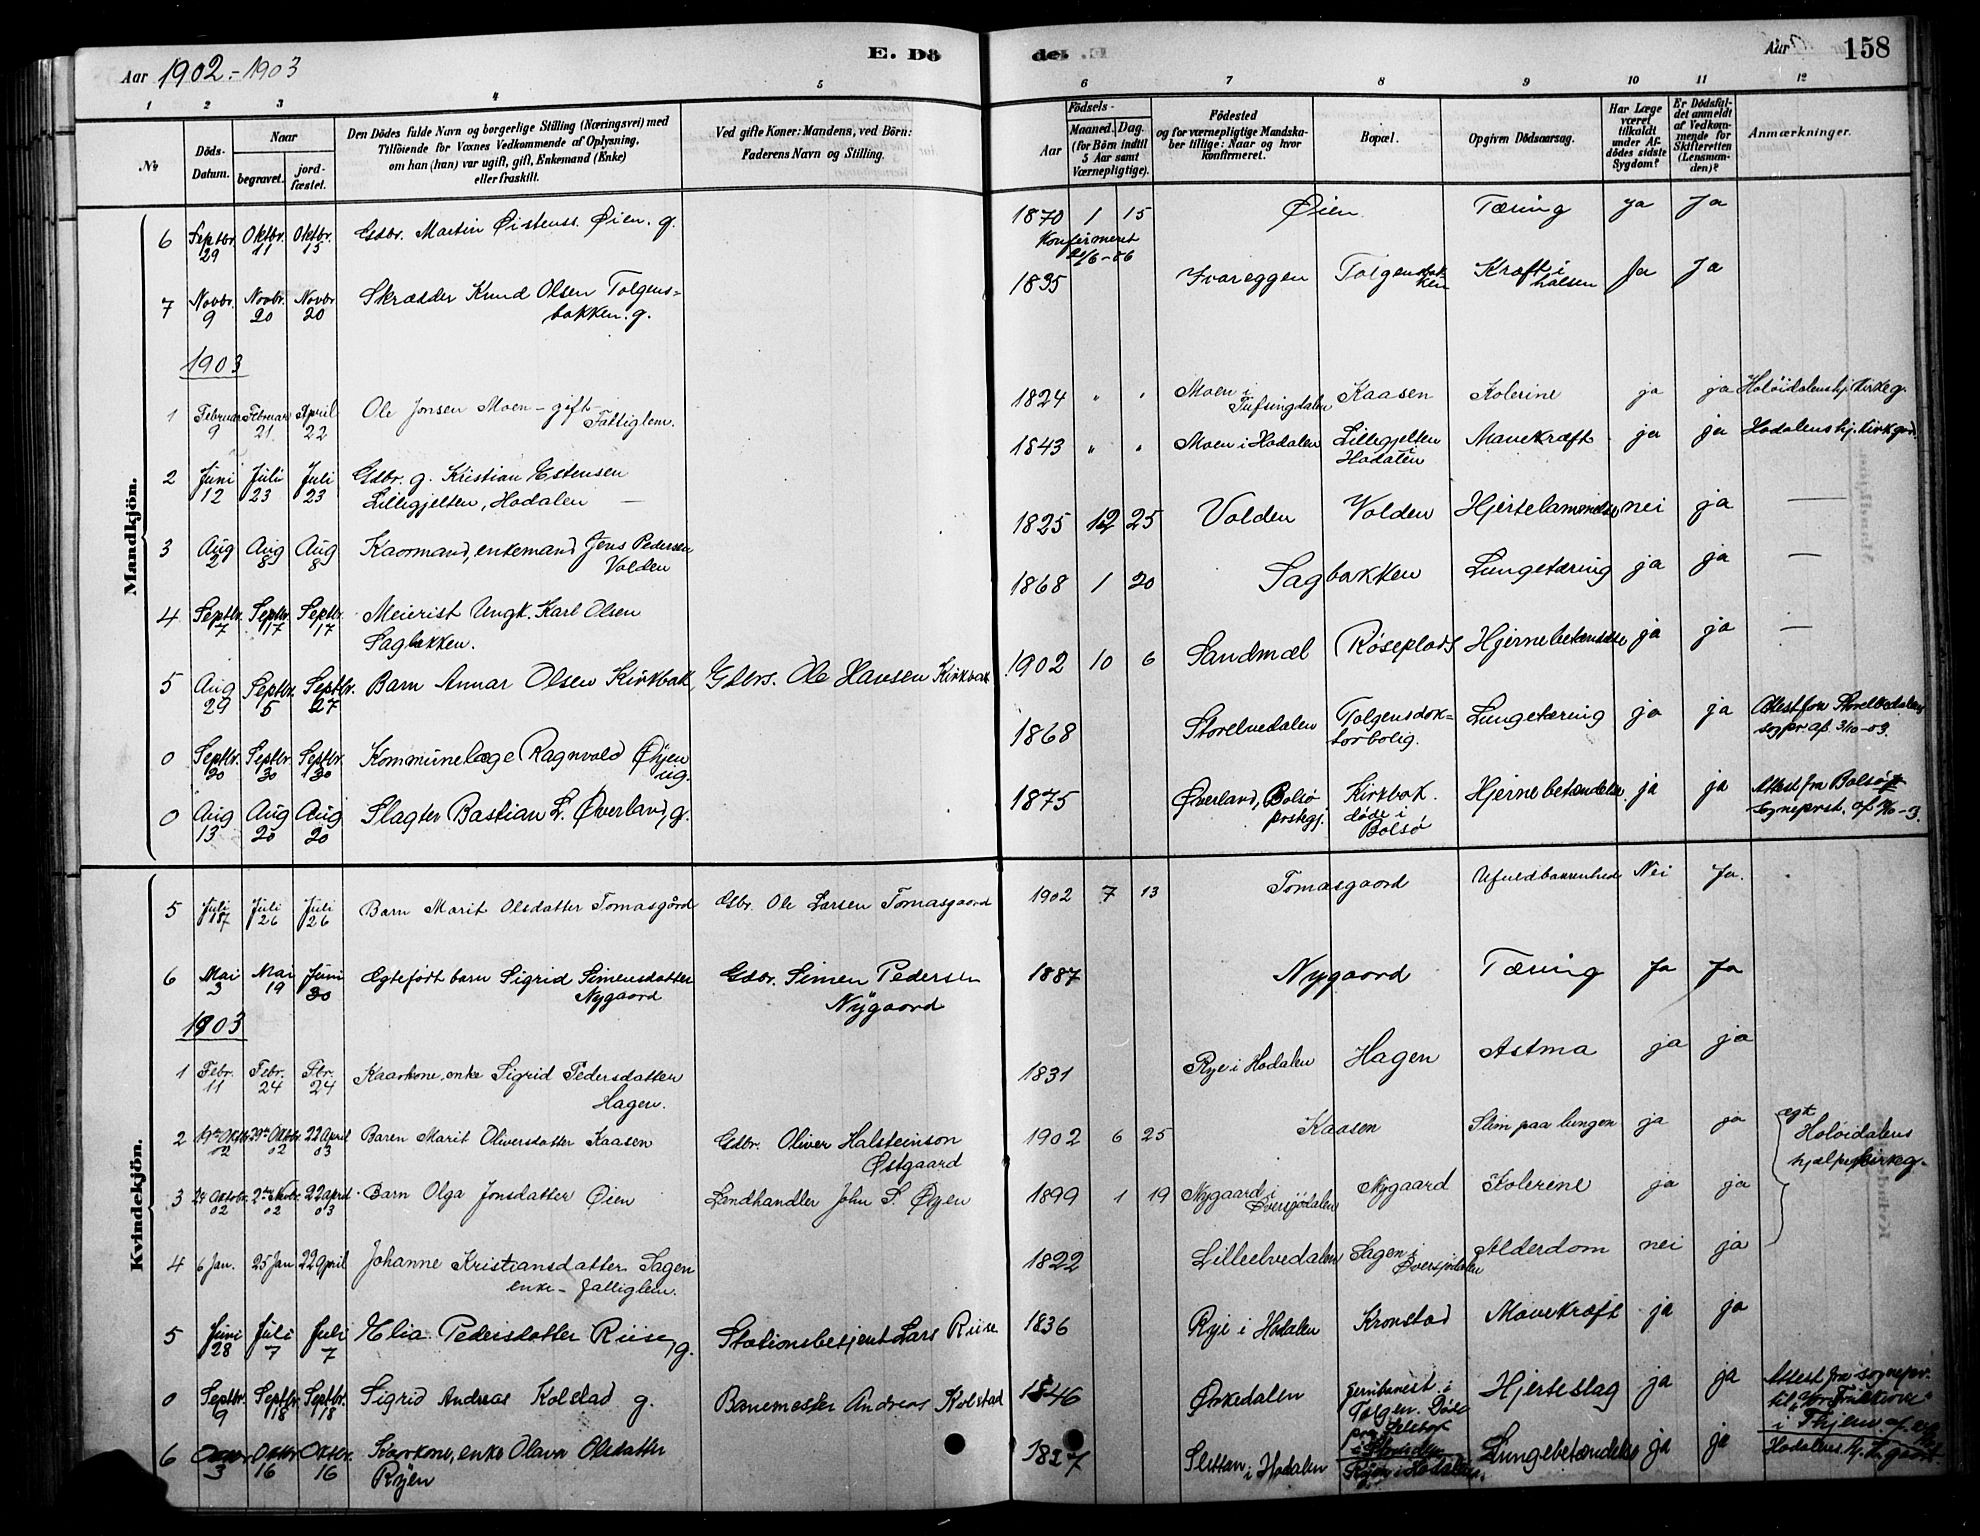 Aar 1902-1903
E. Dö
de.
Aar
158
1 2 3 4 5 6 7 8 9 10 11 12
No
Döds-Datum.
Naar
begravet.
jord-fæstet.
Den Dödes fulde Navn og borgerlige Stilling (Næringsvei) med
Tilföiende for Voxnes Vedkommende af Oplysning,
om han (hun) var ugift, gift, Enkemand (Enke)
eller fraskilt.
Ved gifte Koner: Mandens, ved Börn:
Faderens Navn og Stilling.
Födsels-
Aar
Maaned. Dag.
(for Börn indtil
5 Aar samt
Værnepligtige).
Födested
og for værnepligtige Mandska-
ber tillige: Naar og hvor
konfirmeret.
Bopæl.
Opgiven Dödsaarsag.
Har Læge
været
tilkaldt
under Af-
dödes sidste
Sygdom?
Er Dödsfal-
det anmeldt
af Vedkom-
mende for
Skifteretten
(Lensman-
den)?
Anmærkninger.
Mandkjön.
6 Septbr. 29 Oktbr. 11 Oktbr. 15 Gdbr. Martin Östenss. Øien. g. 1870 1 15 Øien Tæring Ja Ja
Konfirmeret
7 Novbr. 9 Novbr. 20 Novbr 20 Skrædder Knud Olsen Tolgens= 1835 Ivareggen Tolgensbakken Kræft i halsen Ja Ja
bakken. g.
1903
1 Februar 9 Februar 21 April 22 Ole Jonsen Moen - gift 1824 " " Moen i Tufsingdalen Kaasen Kolerine ja ja Holöidalens hj. kirkeg.
Fattiglem.
2 Juni 12 Juli 23 Juli 23 Gdbr. g. Kristian Estensen 1843 " " Moen i Hodalen Lillegjelten Hodalen Mavekræft ja ja Hodalens hj. kirkgrd
Lillegjelten, Hodalen —
3 Aug 2 Aug 8 Aug 8 Kaarmand, enkemand Jens Pedersen 1825 12 25 Volden Volden Hjertelammelse nei ja —
Volden
4 Septbr. 7 Septbr. 17 Septbr. 17 Meierist Ungk. Karl Olsen 1868 1 20 Sagbakken Lungetæring ja ja —
Sagbakken.
5 Aug 29 Septbr. 5 Septbr. 27 Barn Annar Olsen Kirkbak Gdbrs. Ole Hansen Kirkbak 1902 10 6 Sandmæl Röseplads Hjernebetændelse ja ja —
0 Septbr. 20 Septbr. 30 Septbr. 30 Kommunelæge Ragnvald Øyen 1868 Storelvedalen Tolgens dok= Lungetæring ja ja Attest fra Storelvedalens
ug. torbolig. sogpr. af 3/10-03.
0 Aug 13 Aug 20 Aug 20 Slagter Bastian L. Øverland, g. 1875 Øverland, Bolsö prstegj. Kirkbak. döde i Bolsö Hjernebetændelse ja ja Attest fra Bolsö
Sogneprst.
Kvindekjön.
5 Juli 17 Juli 26 Juli 26 Barn Marit Olsdatter Tomasgård Gbr. Ole Larsen Tomasgaard 1902 7 13 Tomasgaard Ufuldbaarenhed Nei Ja.
6 Mai 3 Mai 19 Juni 30 Ægtefödt barn Sigrid Simensdatter Gdbr. Simen Pedersen 1887 Nygaard Tæring Ja Ja
Nygaard Nygaard
1903
1 Febr. 11 Febr. 24 Fbr. 24 Kaarkone, enke Sigrid Pedersdatter 1831 Rye i Hodalen Hagen Astma ja ja
Hagen.
2 19de Oktbr 02 29de Oktbr. 02 22 April 03 Baren Marit Oliversdatter Kaasen Gdbr. Oliver Halsteinson 1902 6 25 Kaasen Slim paa lungen ja ja ægt
Østgaard Holöidalens
hjælpekirkeg.
3 24 Oktobr. 02 22 april 03 Barn Olga Jonsdatter Øien Landhandler John S. Øyen 1899 1 19 Nygaard i Øversjödalen Nygaard Kolerine ja ja
4 6 Jan. 25 Jan 22 April Johanne Kristiansdatter Sagen 1822 Lilleelvedalen Sagen i Øversjödalen Alderdom nei ja
enke - fattiglem.
5 Juni 28 Juli 7 Juli 7 Elia Pedersdatter Riise, g. Stationsbetjent Lars Riise 1836 Rye i Hodalen Kronstad Mavekræft ja ja
0 Septbr. 9 Septbr. 18 Septbr. 18 Sigrid Andreas Kolstad g. Banemester Andreas Kolstad 1846 Ørkedalen Jernbanest. i Tolgen. Döde paa Hjerteslag ja ja Attest fra sognepr.
til Vor Frue kirke
6 3 Oktbr 16 Oktbr. 16 Kaarkone, enke Olava Olsdatter 1827 Slettan i Hodalen Röjen i Hodalen. Lungebetændelse ja ja Hodalens hj. k. gaard.
Röjen